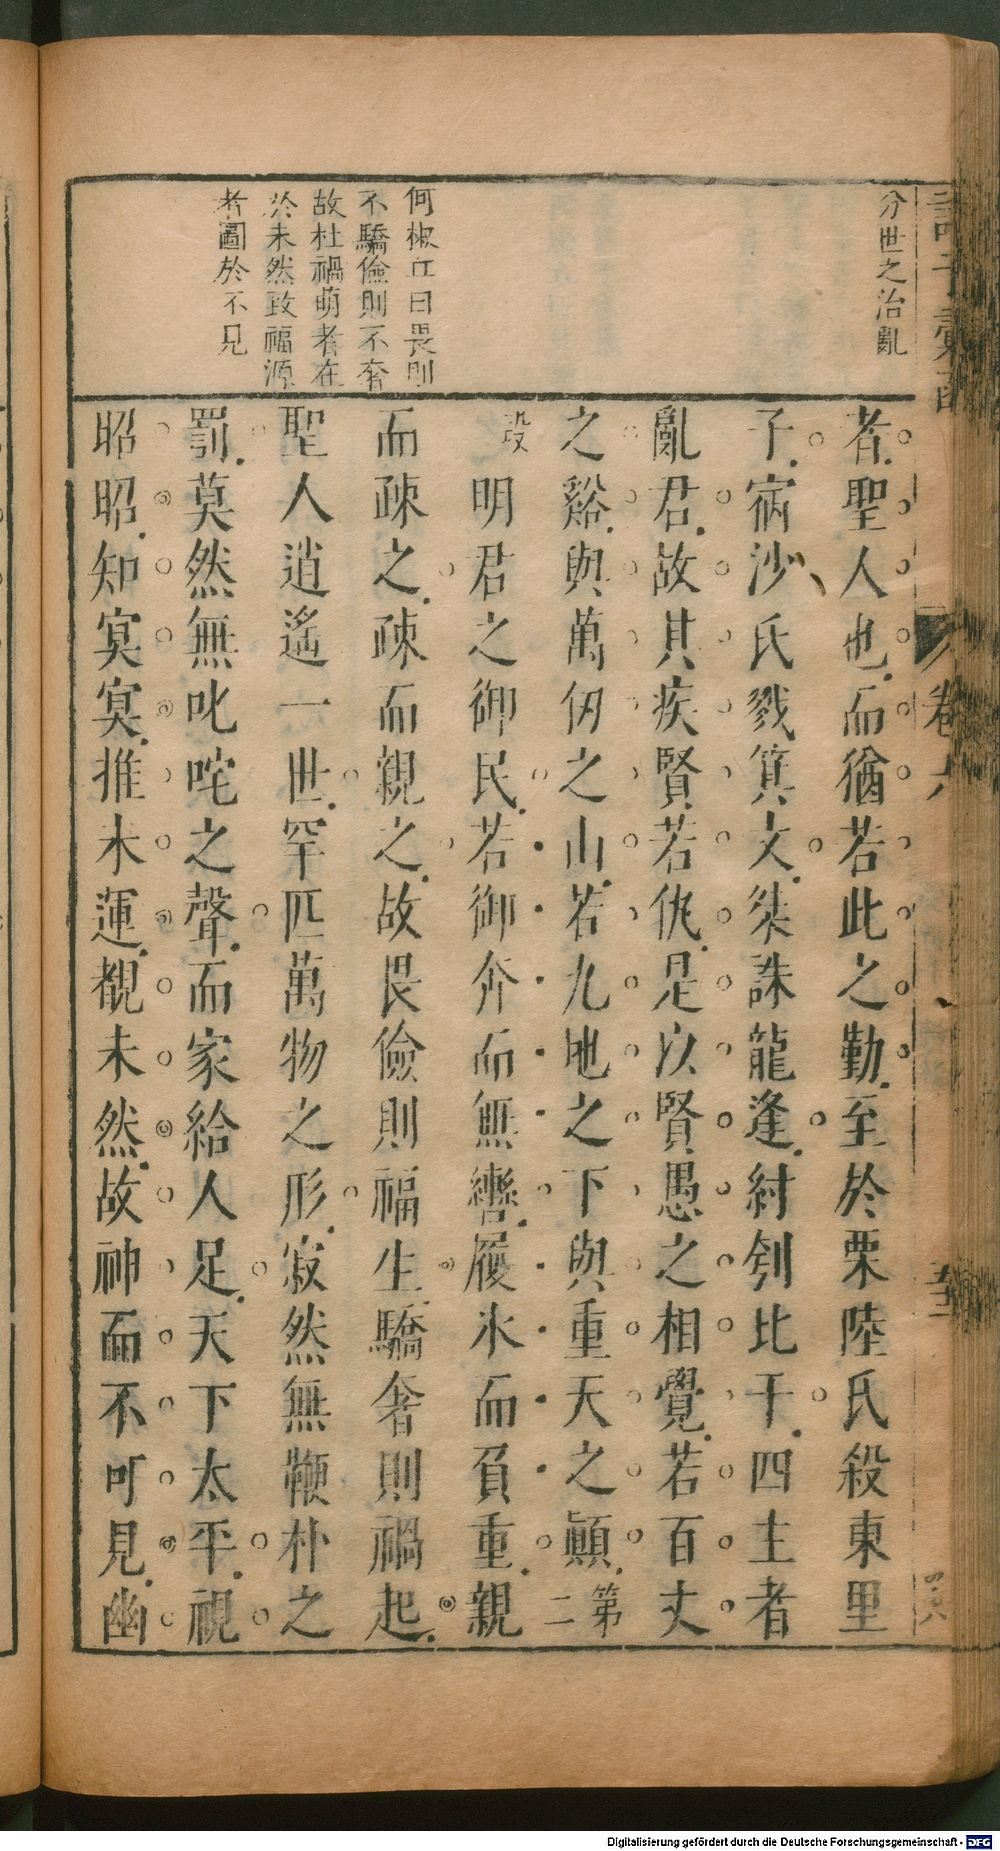 分世之治亂
何椒丘曰畏則
不驕儉則不奢
故杜禍萌者在
於未然致福源
者圖於不見
者聖人也而猶若此之勤至於栗陸氏殺東里
子宿沙氏戮箕文桀誅龍逢紂刳比干四主者
亂君故其疾賢若仇是以賢愚之相覺若百丈
之谿與萬仞之山若九地之下與重天之顛第二
段明君之御民若御奔而無轡履氷而負重親
而疎之疎而親之故畏儉則福生驕奢則禍起
聖人逍遙一世罕匹萬物之形寂然無鞭朴之
罰莫然無叱咤之聲而家給人足天下太平視
昭昭知冥冥推木運覩未然故神而不可見幽
卷六
Digitalisierung gefördert durch die Deutsche Forschungsgemeinschaft - DFG